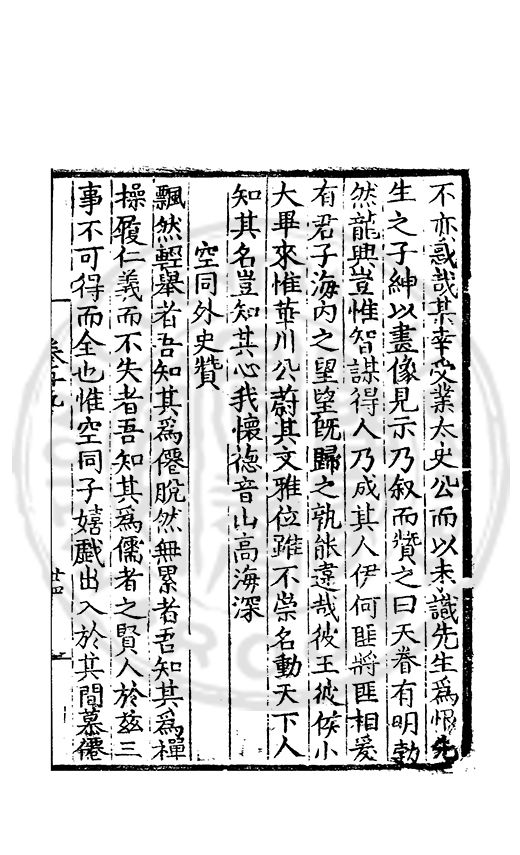 不亦惑哉某幸受業太史公而以未識先生爲恨先
生之子紳以畫像見示乃叙而贊之曰天眷有明勃
然龍興豈惟智謀得人乃成其人伊何匪將匪相爰
有君子海內之望望旣歸之孰能違哉彼王彼侯小
大畢來惟華川公蔚其文雅位雖不崇名動天下人
知其名豈知其心我懷德音山高海深
空同外史贊
飄然輕舉者吾知其爲僊脫然無累者吾知其爲禪
操履仁義而不失者吾知其爲儒者之賢人於茲三
事不可得而全也惟空同子嬉戲出入於其間慕僊